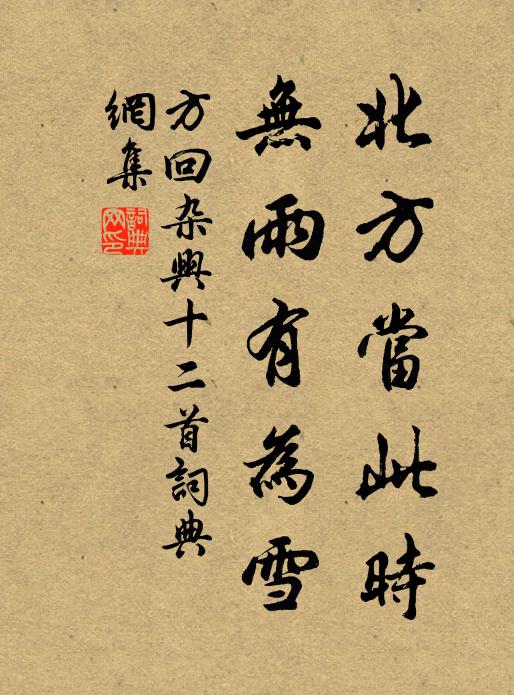 北方當此時
無雨有為雪
方回杂興十二首詞典
網集
詞典网印